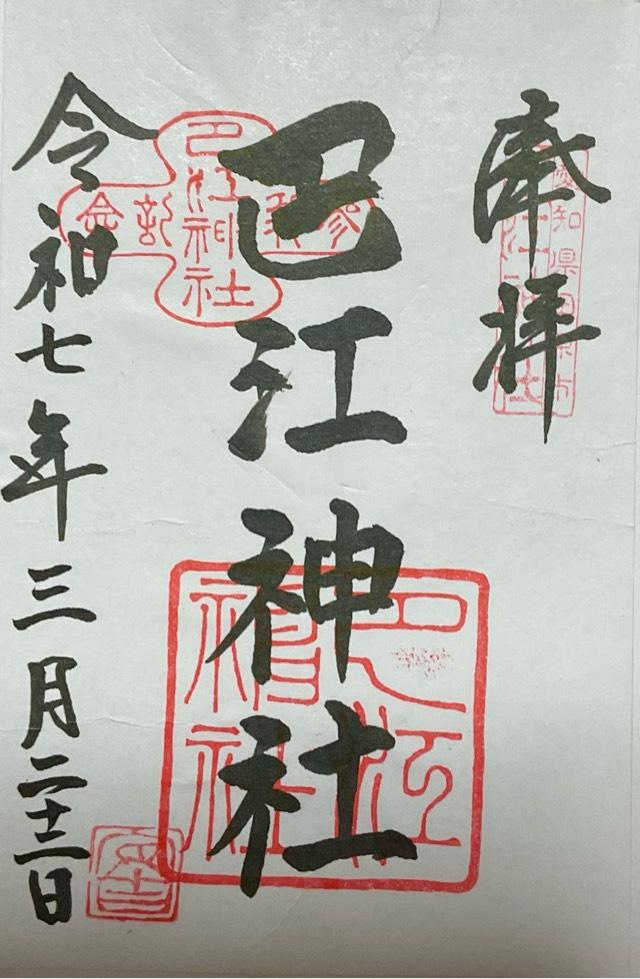 奉拝
愛知県田原市
巴江神社
巴江神社
巴江神社
参拝
記念
巴江神社
令和七年三月二十二日